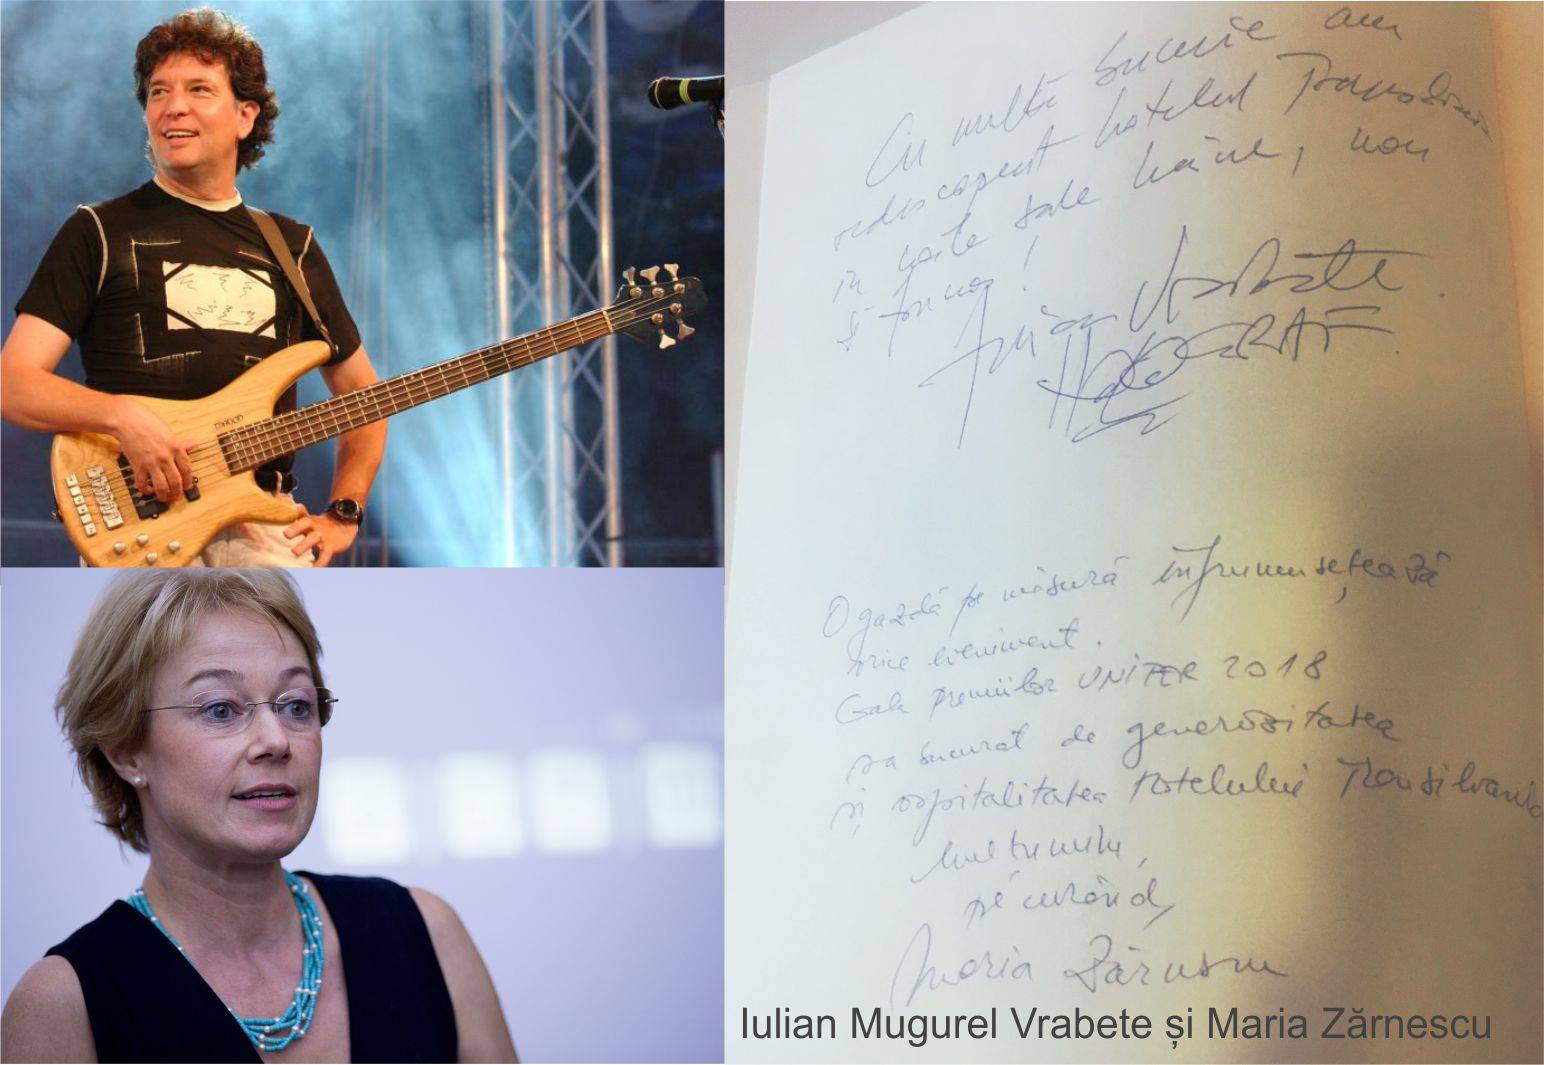 Cu multă bucurie am
redescoperit hotelul Transilvania
în toate sale haine, noi
și frumos!
Iulian Vrabete
HOLOGRAF
O gazdă pe măsură înfrumusețează
orice eveniment.
Gala premiilor UNITER 2018
s-a bucurat de generozitatea
și ospitalitatea hotelului Transilvania
Mulțumim,
pe curând,
Maria Zărnescu
Iulian Mugurel Vrabete și Maria Zărnescu